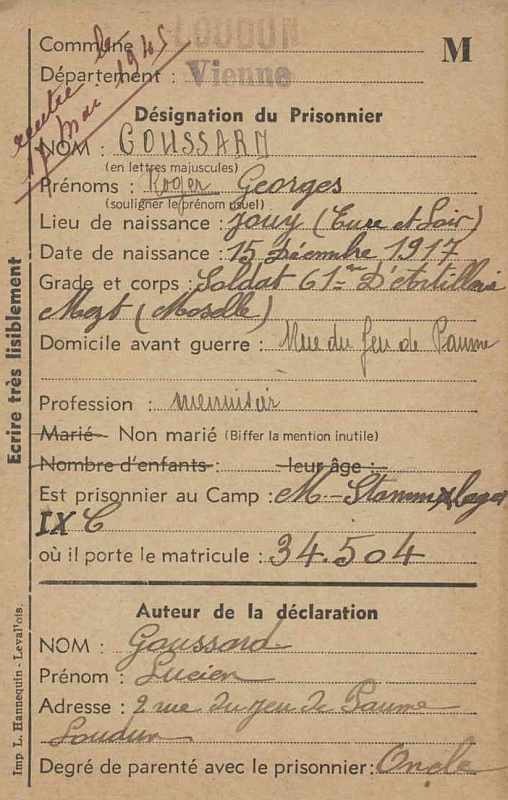 rentré le
17 Mai 1945
Commune : LOUDUN
M
Département : Vienne
Désignation du Prisonnier
NOM : GOUSSARD
(en lettres majuscules)
Prénoms : Roger Georges
(souligner le prénom usuel)
Lieu de naissance : Jouy (Eure et Loir)
Date de naissance : 15 Décembre 1917
Grade et corps : Soldat 61me D'Artillerie
Metz (Moselle)
Domicile avant guerre : Rue du Jeu de Paume
Profession : menuisier
Marié - Non marié (Biffer la mention inutile)
Nombre d'enfants : leur âge :
Est prisonnier au Camp : M - Stammlager
IX C
où il porte le matricule : 34.504
Auteur de la déclaration
NOM : Goussard
Prénom : Lucien
Adresse : 2 rue du jeu de Paume
Loudun
Degré de parenté avec le prisonnier : Oncle
Ecrire très lisiblement
Imp L. Hannequin - Leval'ois.